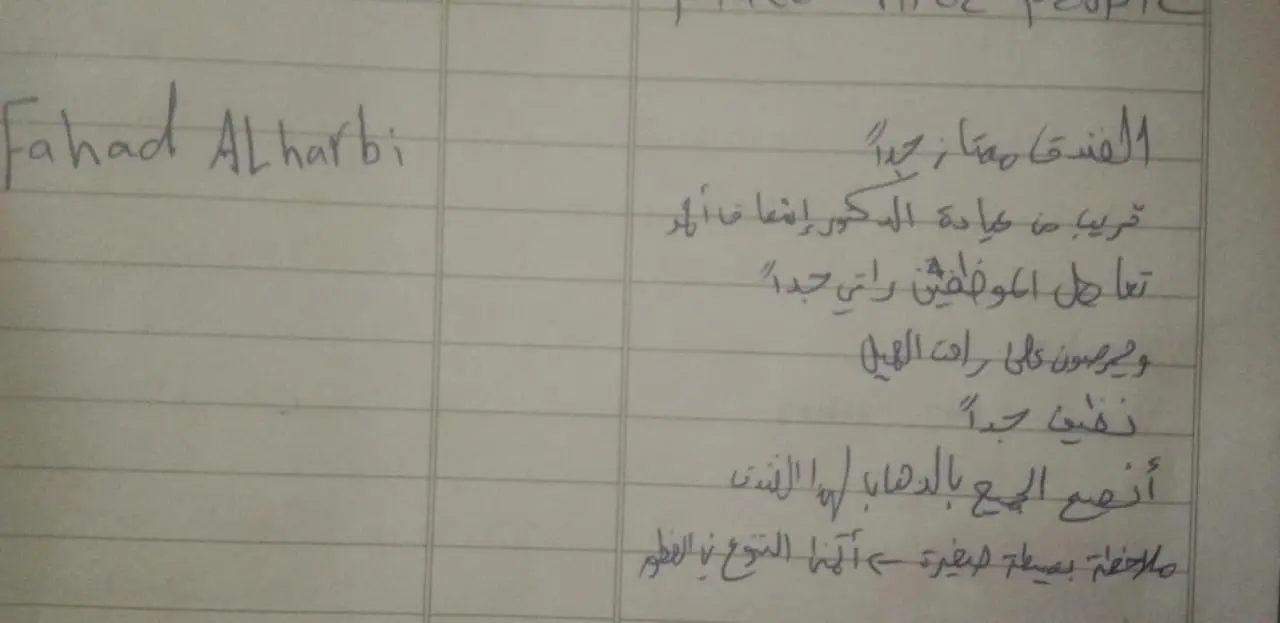 people
Fahad ALharbi
الفندق ممتاز جداً
قريب من عيادة الدكتور إنصاف أحمد
تعامل الموظفين راقي جداً
ويحرصون على راحت العميل
نظيف جداً
أنصح الجميع بالذهاب لهذا الفندق
ملاحظة بسيطة صغيرة -> أتمنا التنوع في الفطور